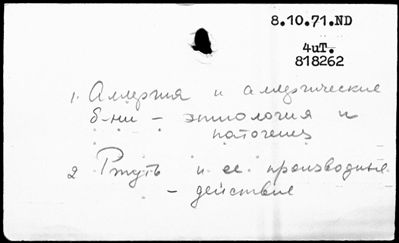 8.10.71.ND
4иT.
818262
1. Аллергия и аллергические
б-ни – этиология и
патогенез
2 Ртуть и ее производные
– действие